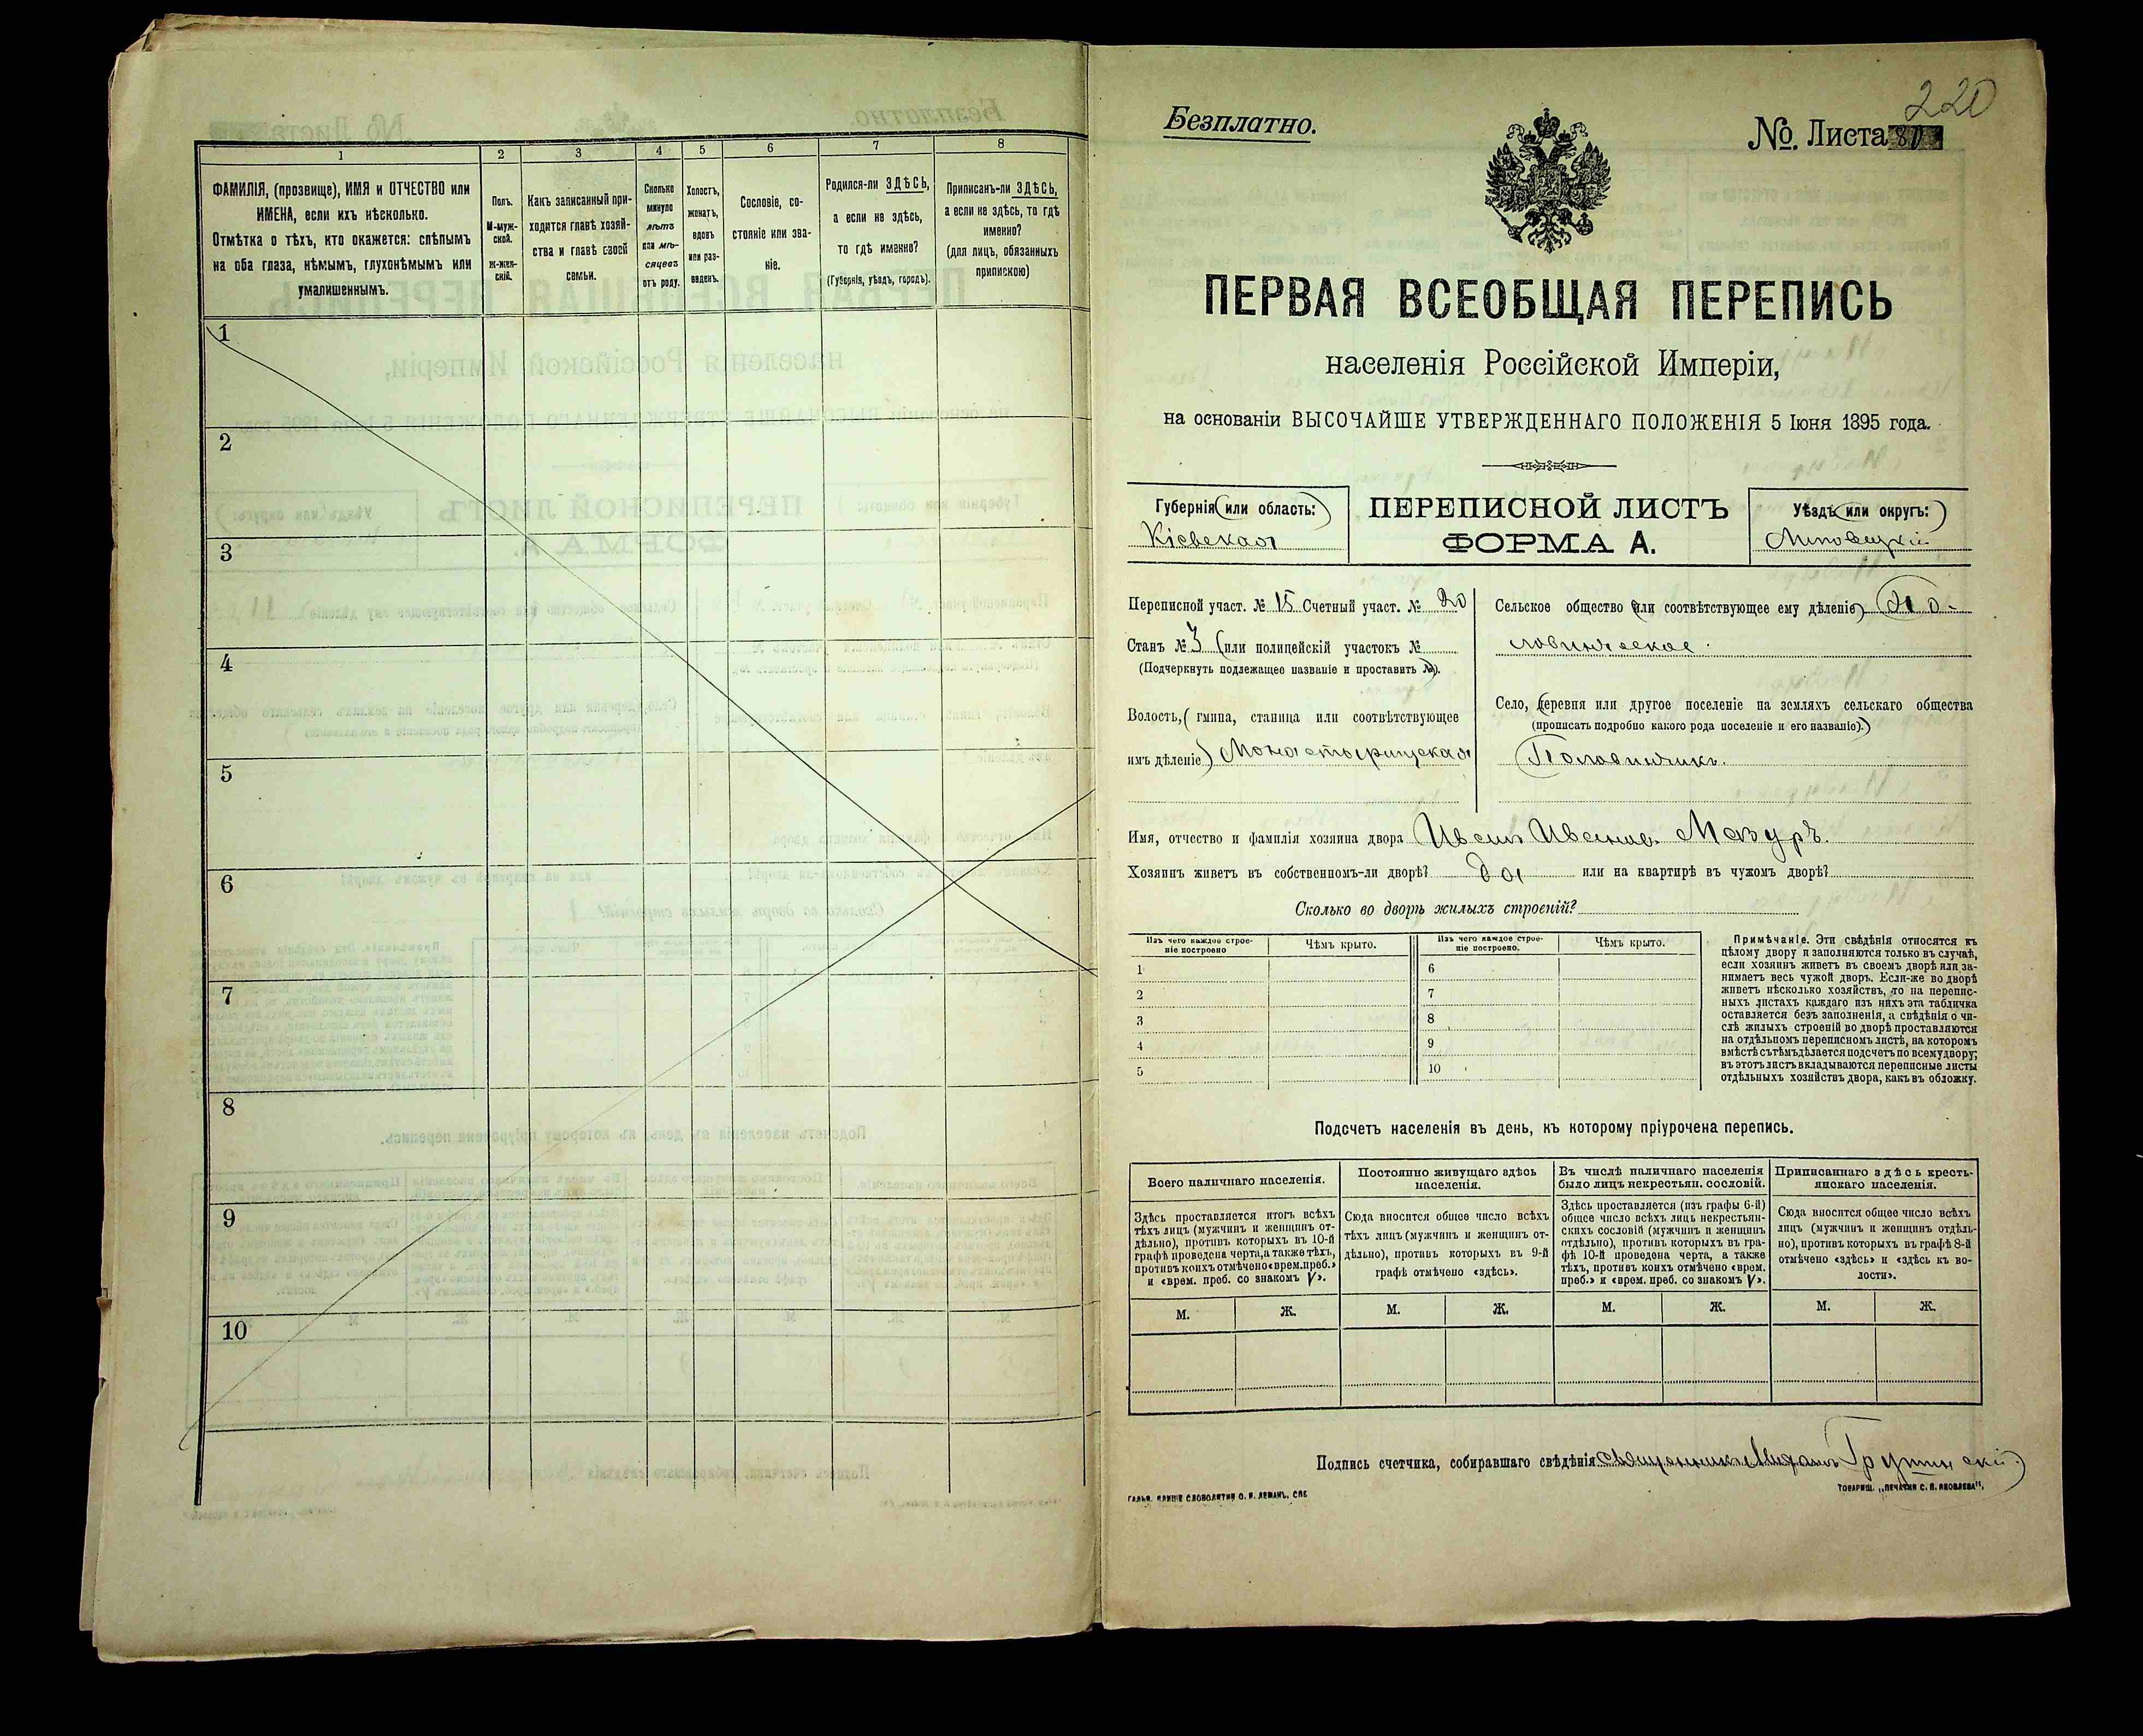 1
2
3
4
5
6
7
8
ФАМИЛІЯ, (прозвище), ИМЯ и ОТЧЕСТВО или
ИМЕНА, если ихъ нѣсколько.
Отмѣтка о тѣхъ, кто окажется: слѣпымъ
на оба глаза, нѣмымъ, глухонѣмымъ или
умалишеннымъ.
Полъ.
М-муж-
ской.
Ж-жен-
скій.
Какъ записанный при-
ходится главѣ хозяй-
ства и главѣ своей
семьи.
Сколько
минуло
лѣтъ
или мѣ-
сяцевъ
отъ роду.
Холостъ,
женатъ,
вдовъ
или раз-
веденъ.
Сословіе, со-
стояніе или зва-
ніе.
Родился-ли ЗДѢСЬ,
а если не здѣсь,
то гдѣ именно?
(Губернія, уѣздъ, городъ).
Приписанъ-ли ЗДѢСЬ,
а если не здѣсь, то гдѣ
именно?
(для лицъ, обязанныхъ
припискою)
1
2
3
4
5
6
7
8
9
10
220
Безплатно.
№. Листа 80
ПЕРВАЯ ВСЕОБЩАЯ ПЕРЕПИСЬ
населенія Россійской Имперіи,
на основаніи ВЫСОЧАЙШЕ УТВЕРЖДЕННАГО ПОЛОЖЕНІЯ 5 Іюня 1895 года.
Губернія (или область:)
Кіевская
ПЕРЕПИСНОЙ ЛИСТЪ
ФОРМА А.
Уѣздъ (или округъ:)
Липовецкій
Переписной участ. № 15 Счетный участ. № 20
Станъ № 3 (или полицейскій участокъ №
(Подчеркнуть подлежащее названіе и проставить №).
Волость, (гмина, станица или соотвѣтствующее
имъ дѣленіе) Монастырищская
Сельское общество (или соотвѣтствующее ему дѣленіе) По-
ловинческое.
Село, (деревня или другое поселеніе на земляхъ сельскаго общества
(прописать подробно какого рода поселеніе и его названіе).)
Половинчикъ.
Имя, отчество и фамилія хозяина двора Иванъ Ивановъ Мазуръ.
Хозяинъ живетъ въ собственномъ-ли дворѣ? да или на квартирѣ въ чужомъ дворѣ?
Сколько во дворѣ жилыхъ строеній?
Изъ чего каждое строе-
ніе построено
Чѣмъ крыто.
Изъ чего каждое строе-
ніе построено.
Чѣмъ крыто.
1
2
3
4
5
6
7
8
9
10
Примѣчаніе. Эти свѣдѣнія относятся къ
цѣлому двору и заполняются только въ случаѣ,
если хозяинъ живетъ въ своемъ дворѣ или за-
нимаетъ весь чужой дворъ. Если-же во дворѣ
живетъ нѣсколько хозяйствъ, то на перепис-
ныхъ листахъ каждаго изъ нихъ эта табличка
оставляется безъ заполненія, а свѣдѣнія о чи-
слѣ жилыхъ строеній во дворѣ проставляются
на отдѣльномъ переписномъ листѣ, на которомъ
вмѣстѣ съ тѣмъ дѣлается подсчетъ по всему двору;
въ этотъ листъ вкладываются переписные листы
отдѣльныхъ хозяйствъ двора, какъ въ обложку.
Подсчетъ населенія въ день, къ которому пріурочена перепись.
Всего наличнаго населенія.
Постоянно живущаго здѣсь
населенія.
Въ числѣ наличнаго населенія
было лицъ некрестьян. сословій.
Приписаннаго здѣсь кресть-
янскаго населенія.
Здѣсь проставляется итогъ всѣхъ
тѣхъ лицъ (мужчинъ и женщинъ от-
дѣльно), противъ которыхъ въ 10-й
графѣ проведена черта, а также тѣхъ,
противъ коихъ отмѣчено «врем. преб.»
и «врем. преб. со знакомъ V».
Сюда вносится общее число всѣхъ
тѣхъ лицъ (мужчинъ и женщинъ от-
дѣльно), противъ которыхъ въ 9-й
графѣ отмѣчено «здѣсь».
Здѣсь проставляется (изъ графы 6-й)
общее число всѣхъ лицъ некрестьян-
скихъ сословій (мужчинъ и женщинъ
отдѣльно), противъ которыхъ въ гра-
фѣ 10-й проведена черта, а также
тѣхъ, противъ коихъ отмѣчено «врем.
преб.» и «врем. преб. со знакомъ V».
Сюда вносится общее число всѣхъ
лицъ (мужчинъ и женщинъ отдѣль-
но), противъ которыхъ въ графѣ 8-й
отмѣчено «здѣсь» и «здѣсь къ во-
лости».
М. Ж. М. Ж. М. Ж. М. Ж.
Подпись счетчика, собиравшаго свѣдѣнія священникъ
ГАЛЬВ. КЛИШЕ СЛОВОЛИТНИ О. И. ЛЕМАНЪ, СПБ
ТОВАРИЩ. „ПЕЧАТНЯ С. П. ЯКОВЛЕВА".